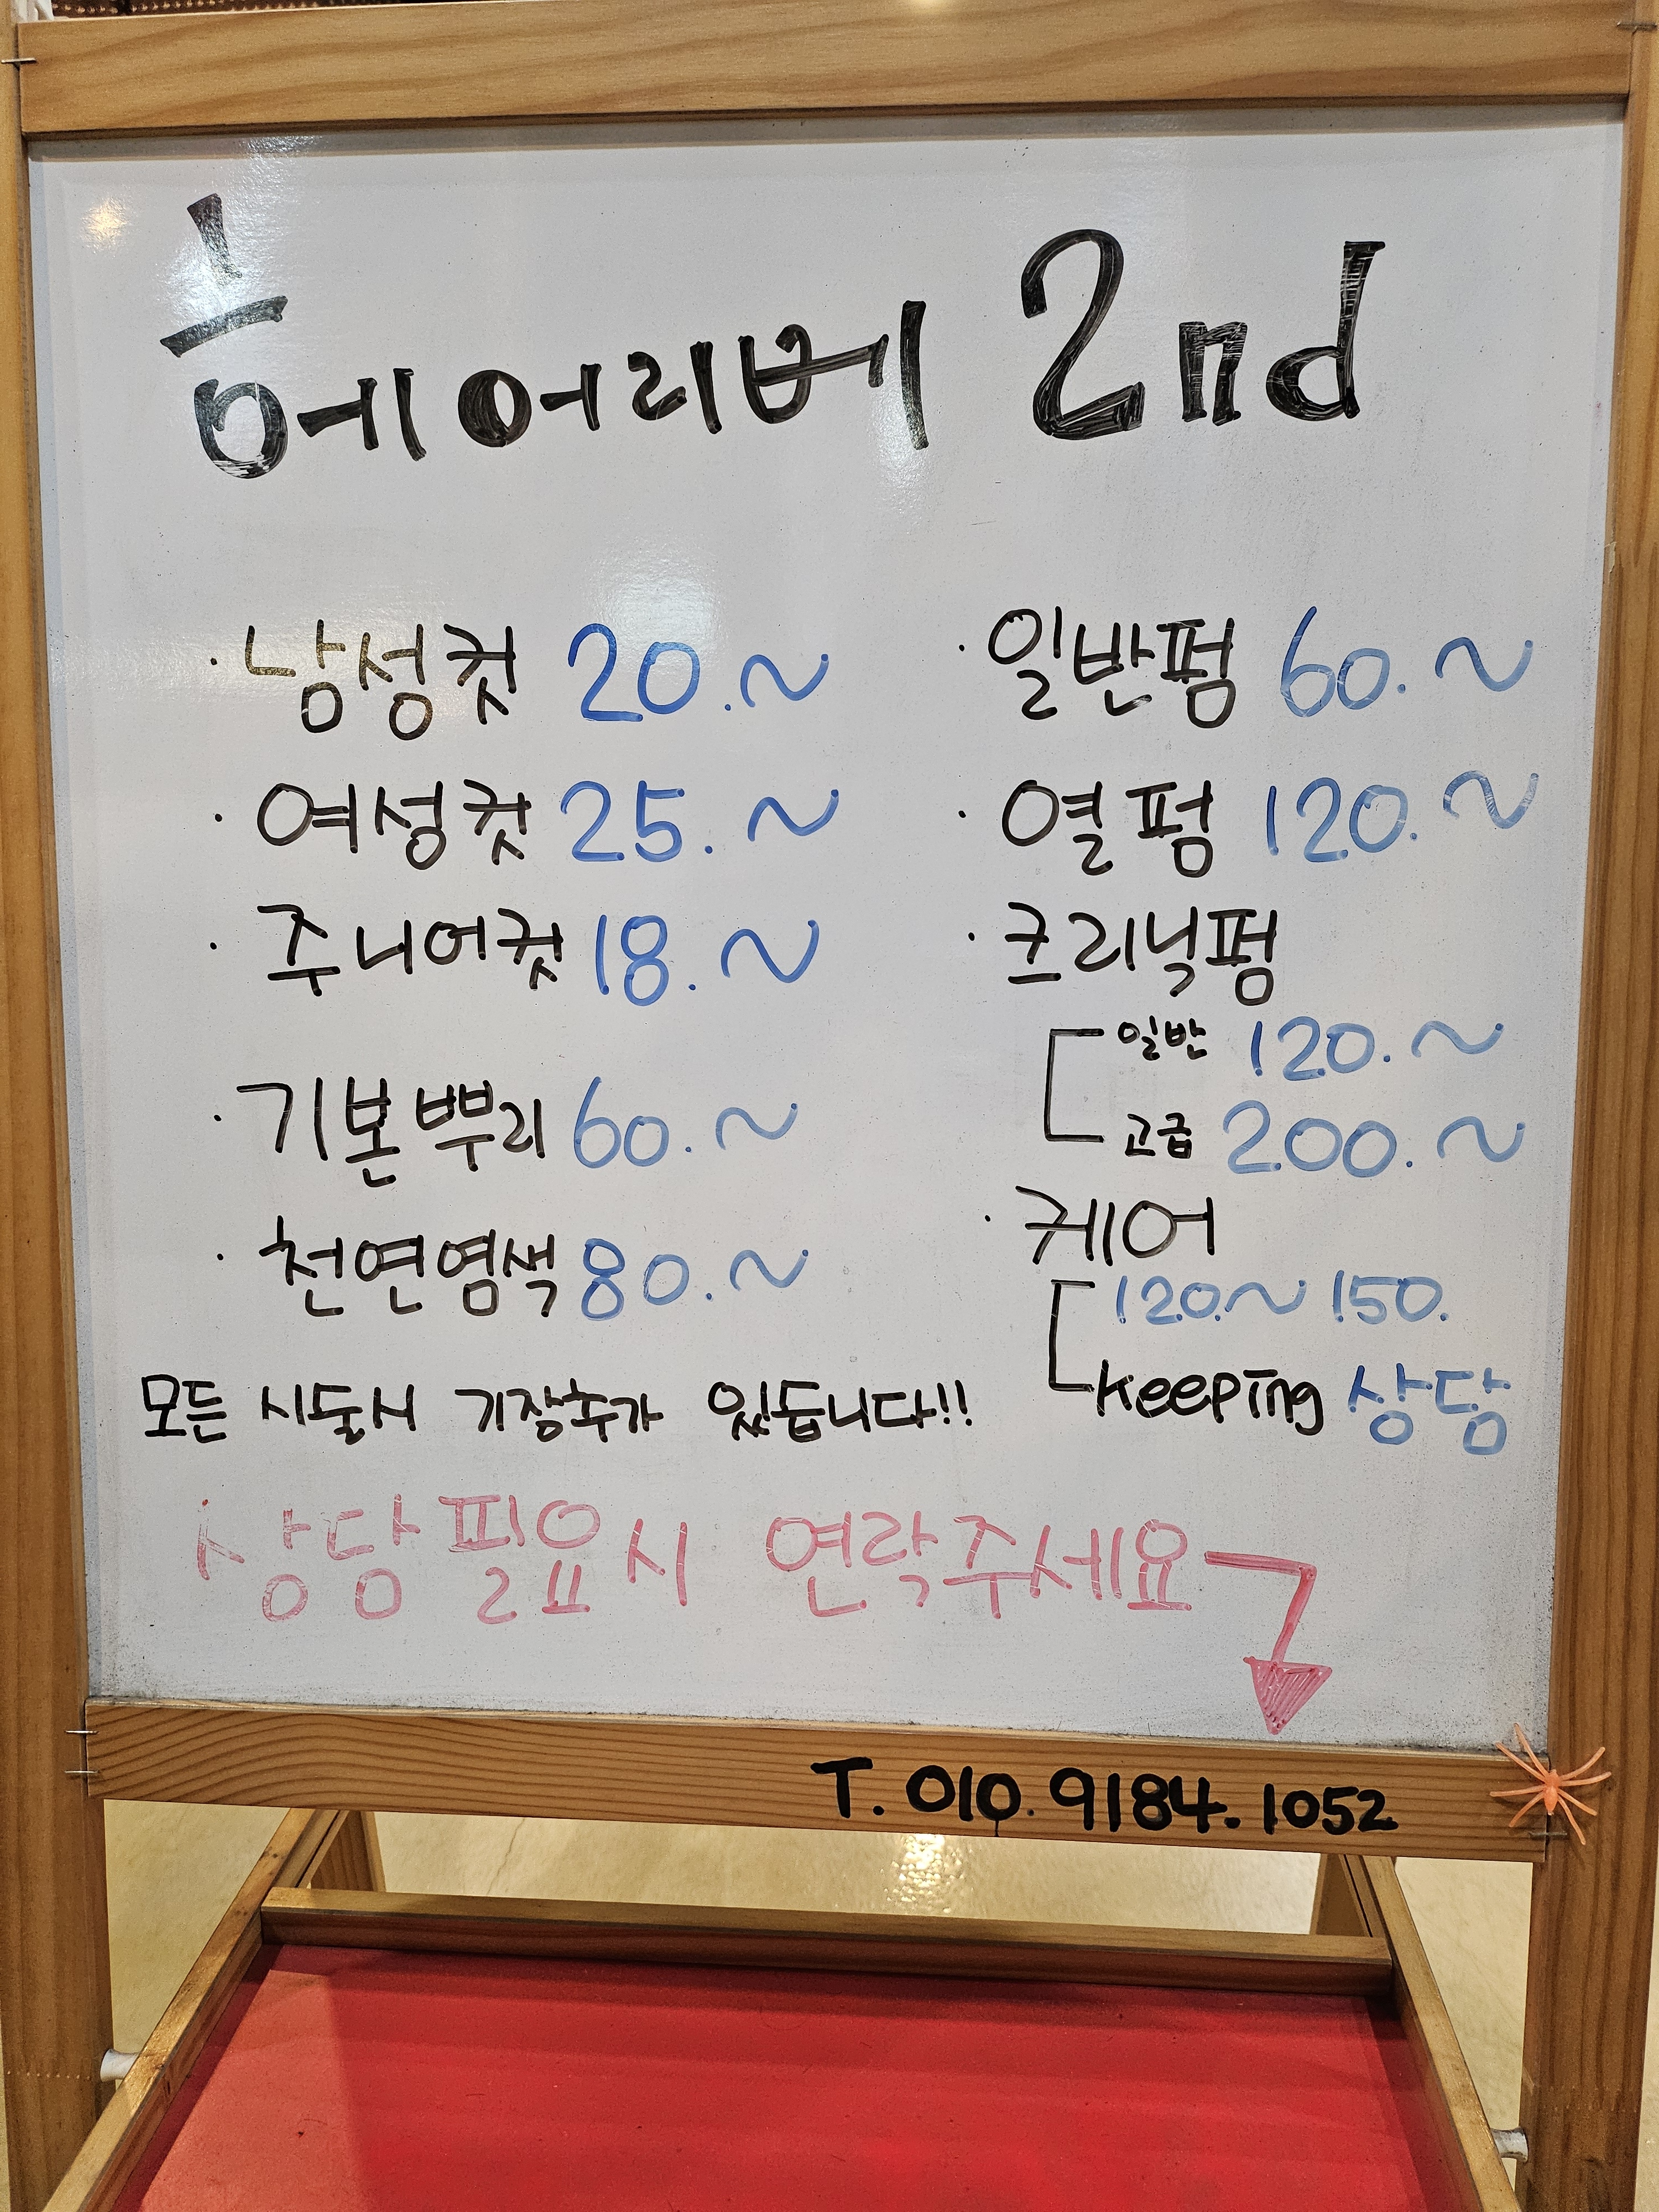 헤어리베 2nd
· 남성컷 20.~
· 여성컷 25.~
· 주니어컷 18.~
· 기본뿌리 60.~
· 천연염색 80.~
· 일반펌 60.~
· 열펌 120.~
· 크리닉펌
일반 120.~
고급 200.~
· 케어
120.~150.
keeping 상담
모든 시술시 기장추가 있습니다!!
상담필요시 연락주세요
T. 010. 9184. 1052